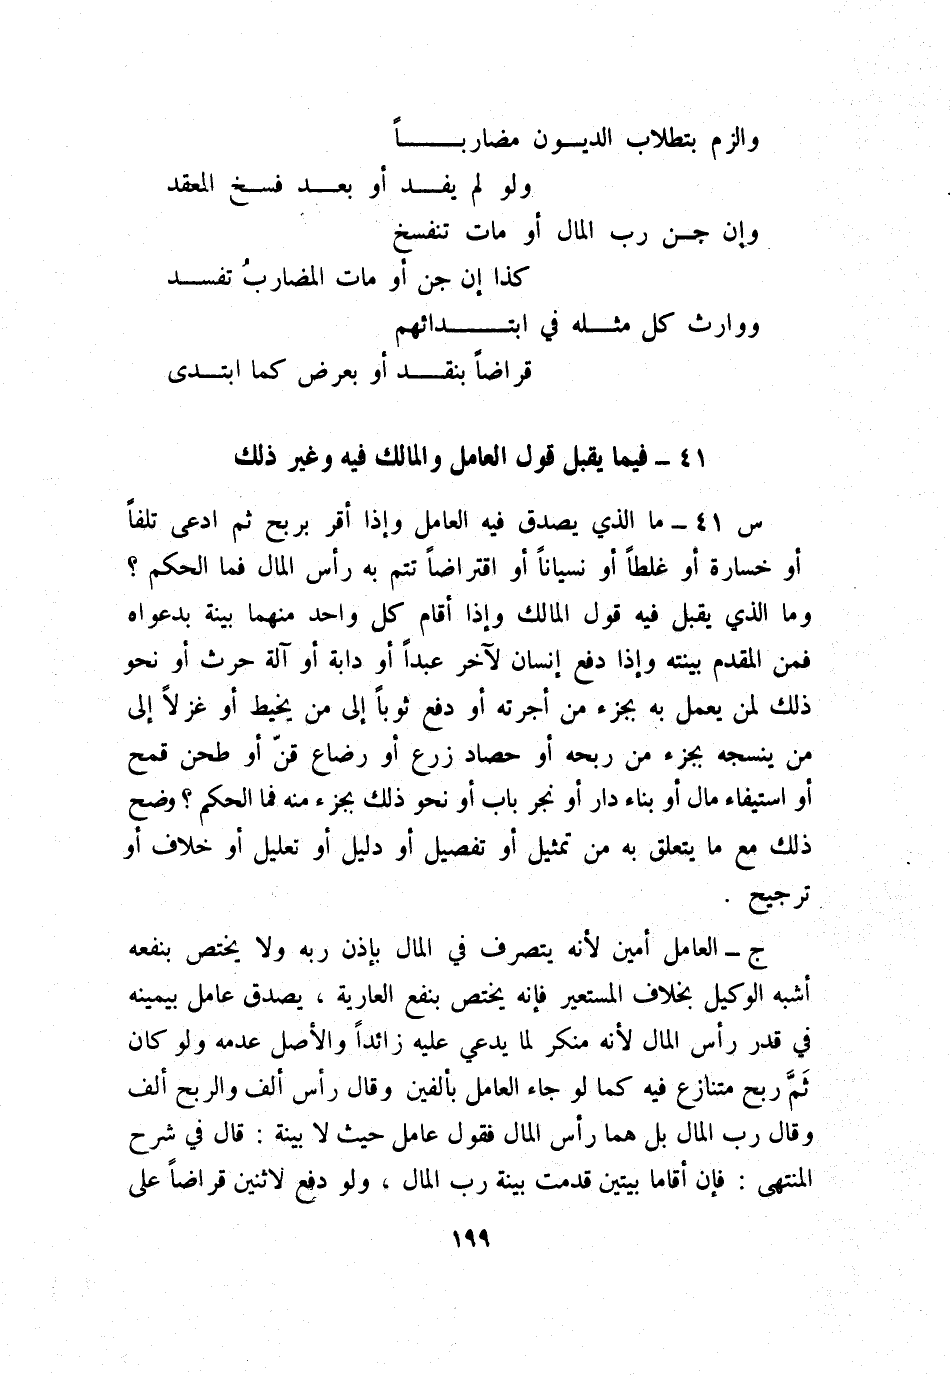 والزم بتطلاب الديـــون مضاربـــــــاً
ولو لم يفــــد أو بعــــد فســـخ المعقد
وإن جــن رب المال أو مات تنفسخ
كذا إن جن أو مات المضاربُ تفســـد
ووارث كل مثــــله في ابتـــــــدائهم
قراضاً بنقــــد أو بعرض كما ابتـــدى
٤١ ـ فيما يقبل قول العامل والمالك فيه وغير ذلك
س ٤١ ـ ما الذي يصدق فيه العامل وإذا أقر بربح ثم ادعى تلفاً
أو خسارة أو غلطاً أو نسياناً أو اقتراضاً تتم به رأس المال فما الحكم ؟
وما الذي يقبل فيه قول المالك وإذا أقام كل واحد منهما بينة بدعواه
فمن المقدم بينته وإذا دفع إنسان لآخر عبداً أو دابة أو آلة حرث أو نحو
ذلك لمن يعمل به بجزء من أجرته أو دفع ثوباً إلى من يخيط أو غزلاً إلى
من ينسجه بجزء من ربحه أو حصاد زرع أو رضاع قنّ أو طحن قمح
أو استيفاء مال أو بناء دار أو نجر باب أو نحو ذلك بجزء منه فما الحكم ؟ وضح
ذلك مع ما يتعلق به من تمثيل أو تفصيل أو دليل أو تعليل أو خلاف أو
ترجيح .
ج ـ العامل أمين لأنه يتصرف في المال بإذن ربه ولا يختص بنفعه
أشبه الوكيل بخلاف المستعير فإنه يختص بنفع العارية ، يصدق عامل بيمينه
في قدر رأس المال لأنه منكر لما يدعي عليه زائداً والأصل عدمه ولو كان
ثَمَّ ربح متنازع فيه كما لو جاء العامل بألفين وقال رأس ألف والربح ألف
وقال رب المال بل هما رأس المال فقول عامل حيث لا بينة : قال في شرح
المنتهى : فإن أقاما بيتين قدمت بينة رب المال ، ولو دفع لاثنين قراضاً على
١٩٩